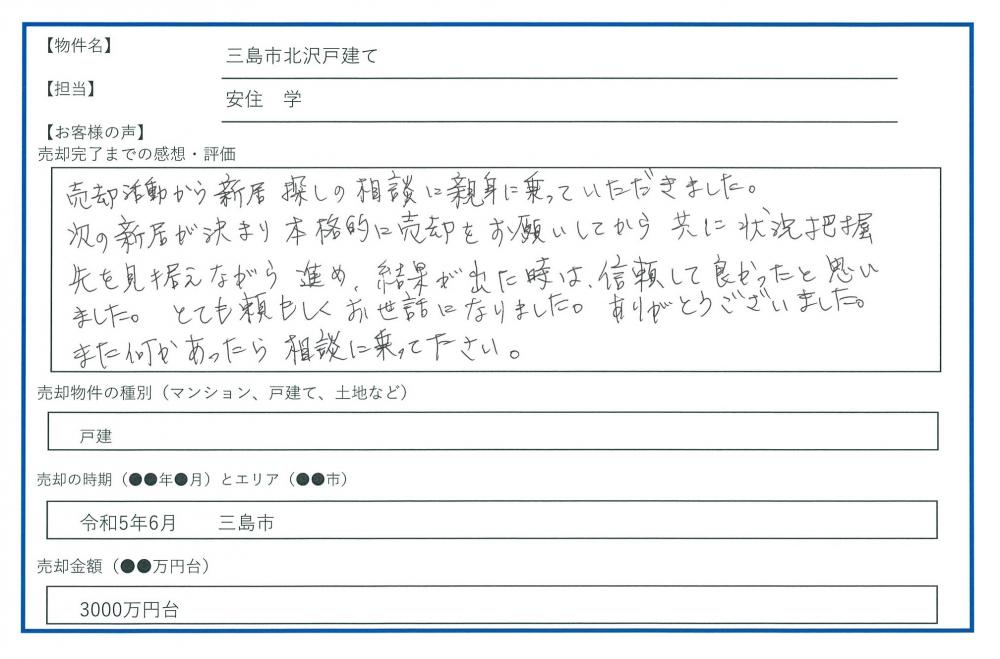 【物件名】
三島市北沢戸建て
【担当】
安住　学
【お客様の声】
売却完了までの感想・評価
売却活動から新居探しの相談に親身に乗っていただきました。
次の新居が決まり本格的に売却をお願いしてから共に状況把握
先を見据えながら進め、結果が出た時は、信頼して良かったと思い
ました。とても頼もしくお世話になりました。ありがとうございました。
また何かあったら相談に乗って下さい。
売却物件の種別（マンション、戸建て、土地など）
戸建
売却の時期（●●年●月）とエリア（●●市）
令和5年6月　三島市
売却金額（●●万円台）
3000万円台